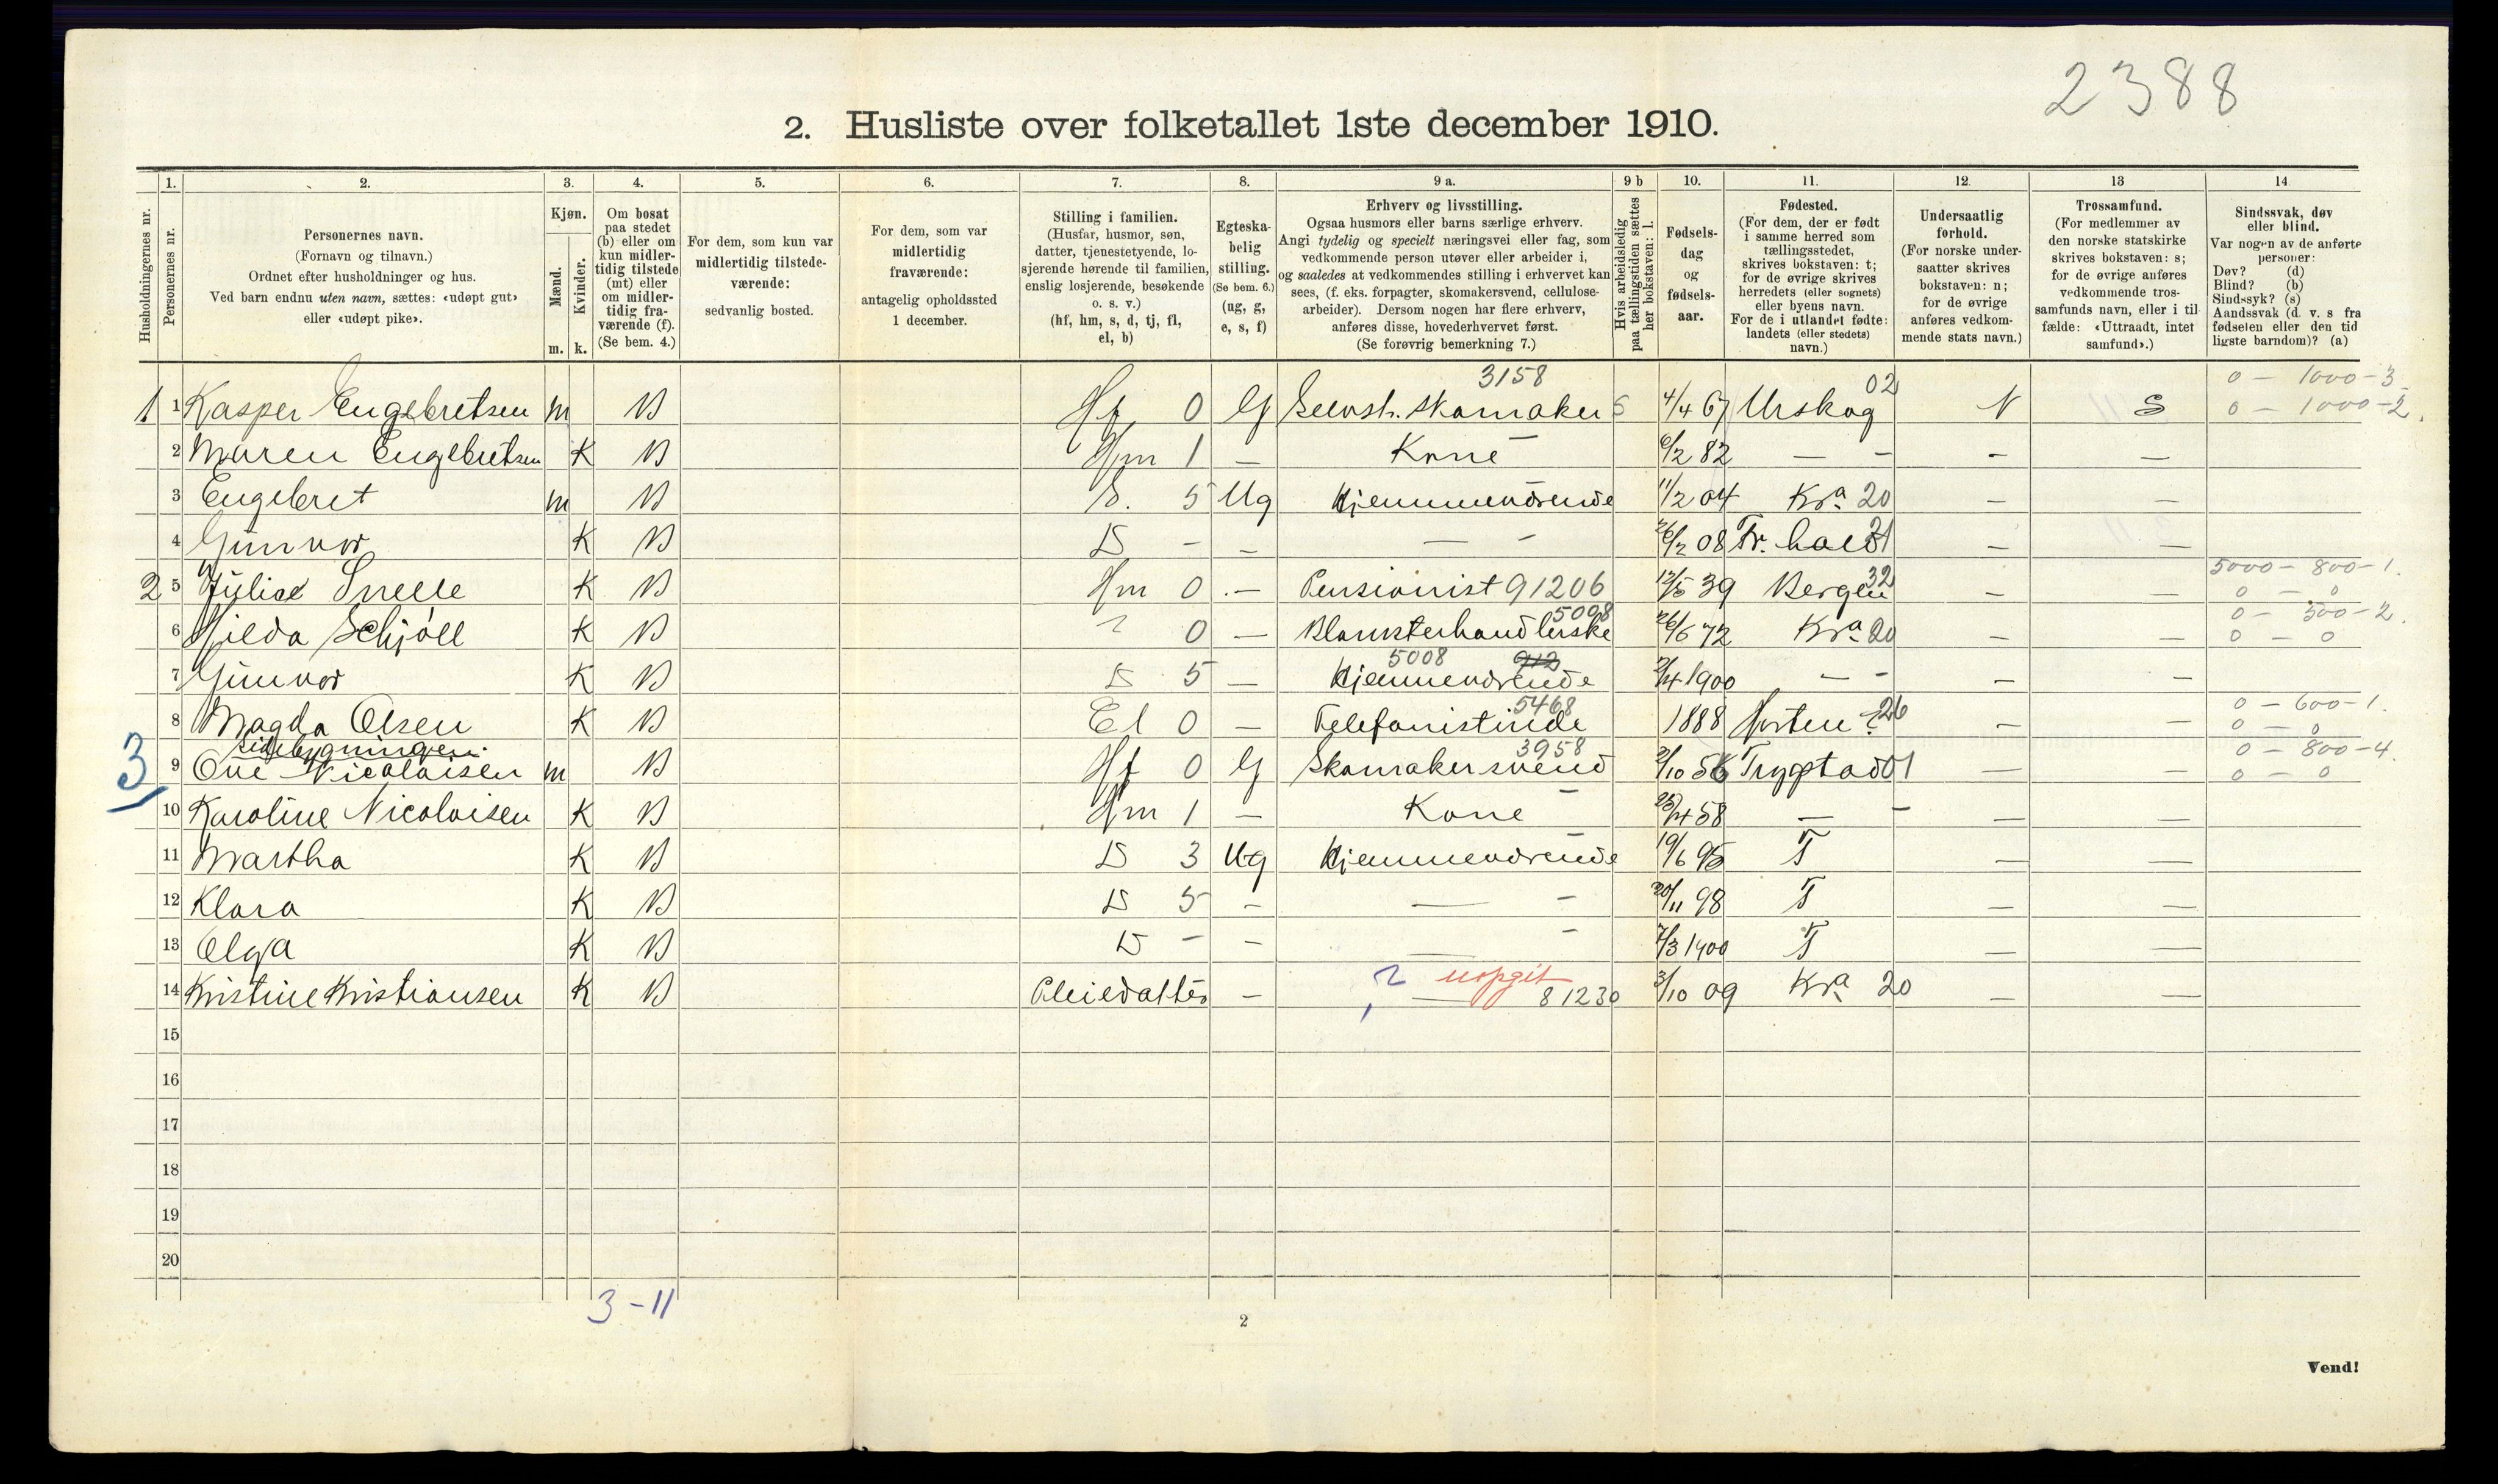 2388
2. Husliste over folketallet 1ste december 1910.
Husholdningernes nr.
1. Personernes nr.
2. Personernes navn.
(Fornavn og tilnavn.)
Ordnet efter husholdninger og hus.
Ved barn endnu uten navn, sættes: «udøpt gut»
eller «udøpt pike».
3. Kjøn.
Mænd. m.
Kvinder. k.
4. Om bosat
paa stedet
(b) eller om
kun midler-
tidig tilstede
(mt) eller
om midler-
tidig fra-
værende (f).
(Se bem. 4.)
5. For dem, som kun var
midlertidig tilstede-
værende:
sedvanlig bosted.
6. For dem, som var
midlertidig
fraværende:
antagelig opholdssted
1 december.
7. Stilling i familien.
(Husfar, husmor, søn,
datter, tjenestetyende, lo-
sjerende hørende til familien,
enslig losjerende, besøkende
o. s. v.)
(hf, hm, s, d, tj, fl,
el, b)
8. Egteska-
belig
stilling.
(Se bem. 6.)
(ug, g,
e, s, f)
9 a. Erhverv og livsstilling.
Ogsaa husmors eller barns særlige erhverv.
Angi tydelig og specielt næringsvei eller fag, som
vedkommende person utøver eller arbeider i,
og saaledes at vedkommendes stilling i erhvervet kan
sees, (f. eks. forpagter, skomakersvend, cellulose-
arbeider). Dersom nogen har flere erhverv,
anføres disse, hovederhvervet først.
(Se forøvrig bemerkning 7.)
9 b Hvis arbeidsledig
paa tællingstiden sættes
her bokstaven: l.
10. Fødsels-
dag
og
fødsels-
aar.
11. Fødested.
(For dem, der er født
i samme herred som
tællingsstedet,
skrives bokstaven: t;
for de øvrige skrives
herredets (eller sognets)
eller byens navn.
For de i utlandet fødte:
landets (eller stedets)
navn.)
12. Undersaatlig
forhold.
(For norske under-
saatter skrives
bokstaven: n;
for de øvrige
anføres vedkom-
mende stats navn.)
13 Trossamfund.
(For medlemmer av
den norske statskirke
skrives bokstaven: s;
for de øvrige anføres
vedkommende tros-
samfunds navn, eller i til-
fælde: «Uttraadt, intet
samfund».)
14 Sindssvak, døv
eller blind.
Var nogen av de anførte
personer:
Døv? (d)
Blind? (b)
Sindssyk? (s)
Aandssvak (d. v. s fra
fødselen eller den tid-
ligste barndom)? (a)
3158 02 0 - 1000-3
1 1 Kasper Engebretsen m B Hf 0 G Selvst. Skomaker S 4/4 67 Urskog N S 0 - 1000-2.
2 Maren Engebretsen K B Hm 1 — Kone 6/2 82 — - - —
3 Engebret m B S. 5 Ug Hjemmeværende 11/2 04 Kra 20 — —
4 Gunvor K B D - - — - 26/2 08 Fr. hald 31 — —
32 5000 - 800-1.
2 5 Julie Snelle K B Hm 0 — Pensionist 91206 12/5 39 Bergen — — 0 - 0
5008 0 - 500-2.
6 Hilda Schjöll K B ? 0 — Blomsterhandlerske 26/6 72 Kra 20 — — 0 - 0
5008 912
7 Gunvor K B D 5 — Hjemmeværende 2/4 1900 — - — —
5468 0 - 600-1.
8 Magda Olsen K B El 0 — Telefonistinde 1888 Horten ? 26 — — 0 - 0
Sidebygningen. 3958 0 - 800-4.
3 9 Ove Nicolaisen m B Hf 0 G Skomakersvend 2/10 56 Trygstad 01 — — 0 - 0
10 Karoline Nicolaisen K B Hm 1 — Kone 25/4 58 — - — —
11 Martha K B D 3 Ug Hjemmeværende 19/6 95 T — —
12 Klara K B D 5 - — - 20/11 98 T — —
13 Olga K B D - - — - 7/3 1900 T — —
? uopgit
14 Kristine Kristiansen K B Pleiedatter — — 81230 3/10 09 Kra 20 — —
15
16
17
18
19
20
3-11
2
Vend!